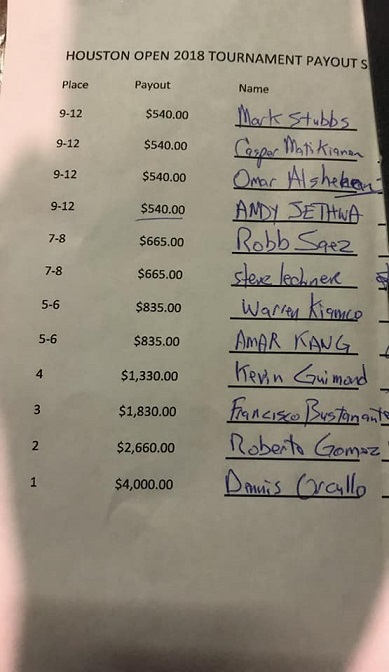 HOUSTON OPEN 2018 TOURNAMENT PAYOUT S
Place Payout Name
9-12 $540.00 Mark Stubbs
9-12 $540.00 Caspar Matikianan
9-12 $540.00 Omar Alshaheen
9-12 $540.00 ANDY SETHNA
7-8 $665.00 Robb Saez
7-8 $665.00 steve lechner
5-6 $835.00 Warren Kiamco
5-6 $835.00 AMAR KANG
4 $1,330.00 Kevin Guimond
3 $1,830.00 Francisco Bustamante
2 $2,660.00 Roberto Gomez
1 $4,000.00 Dennis Orcullo